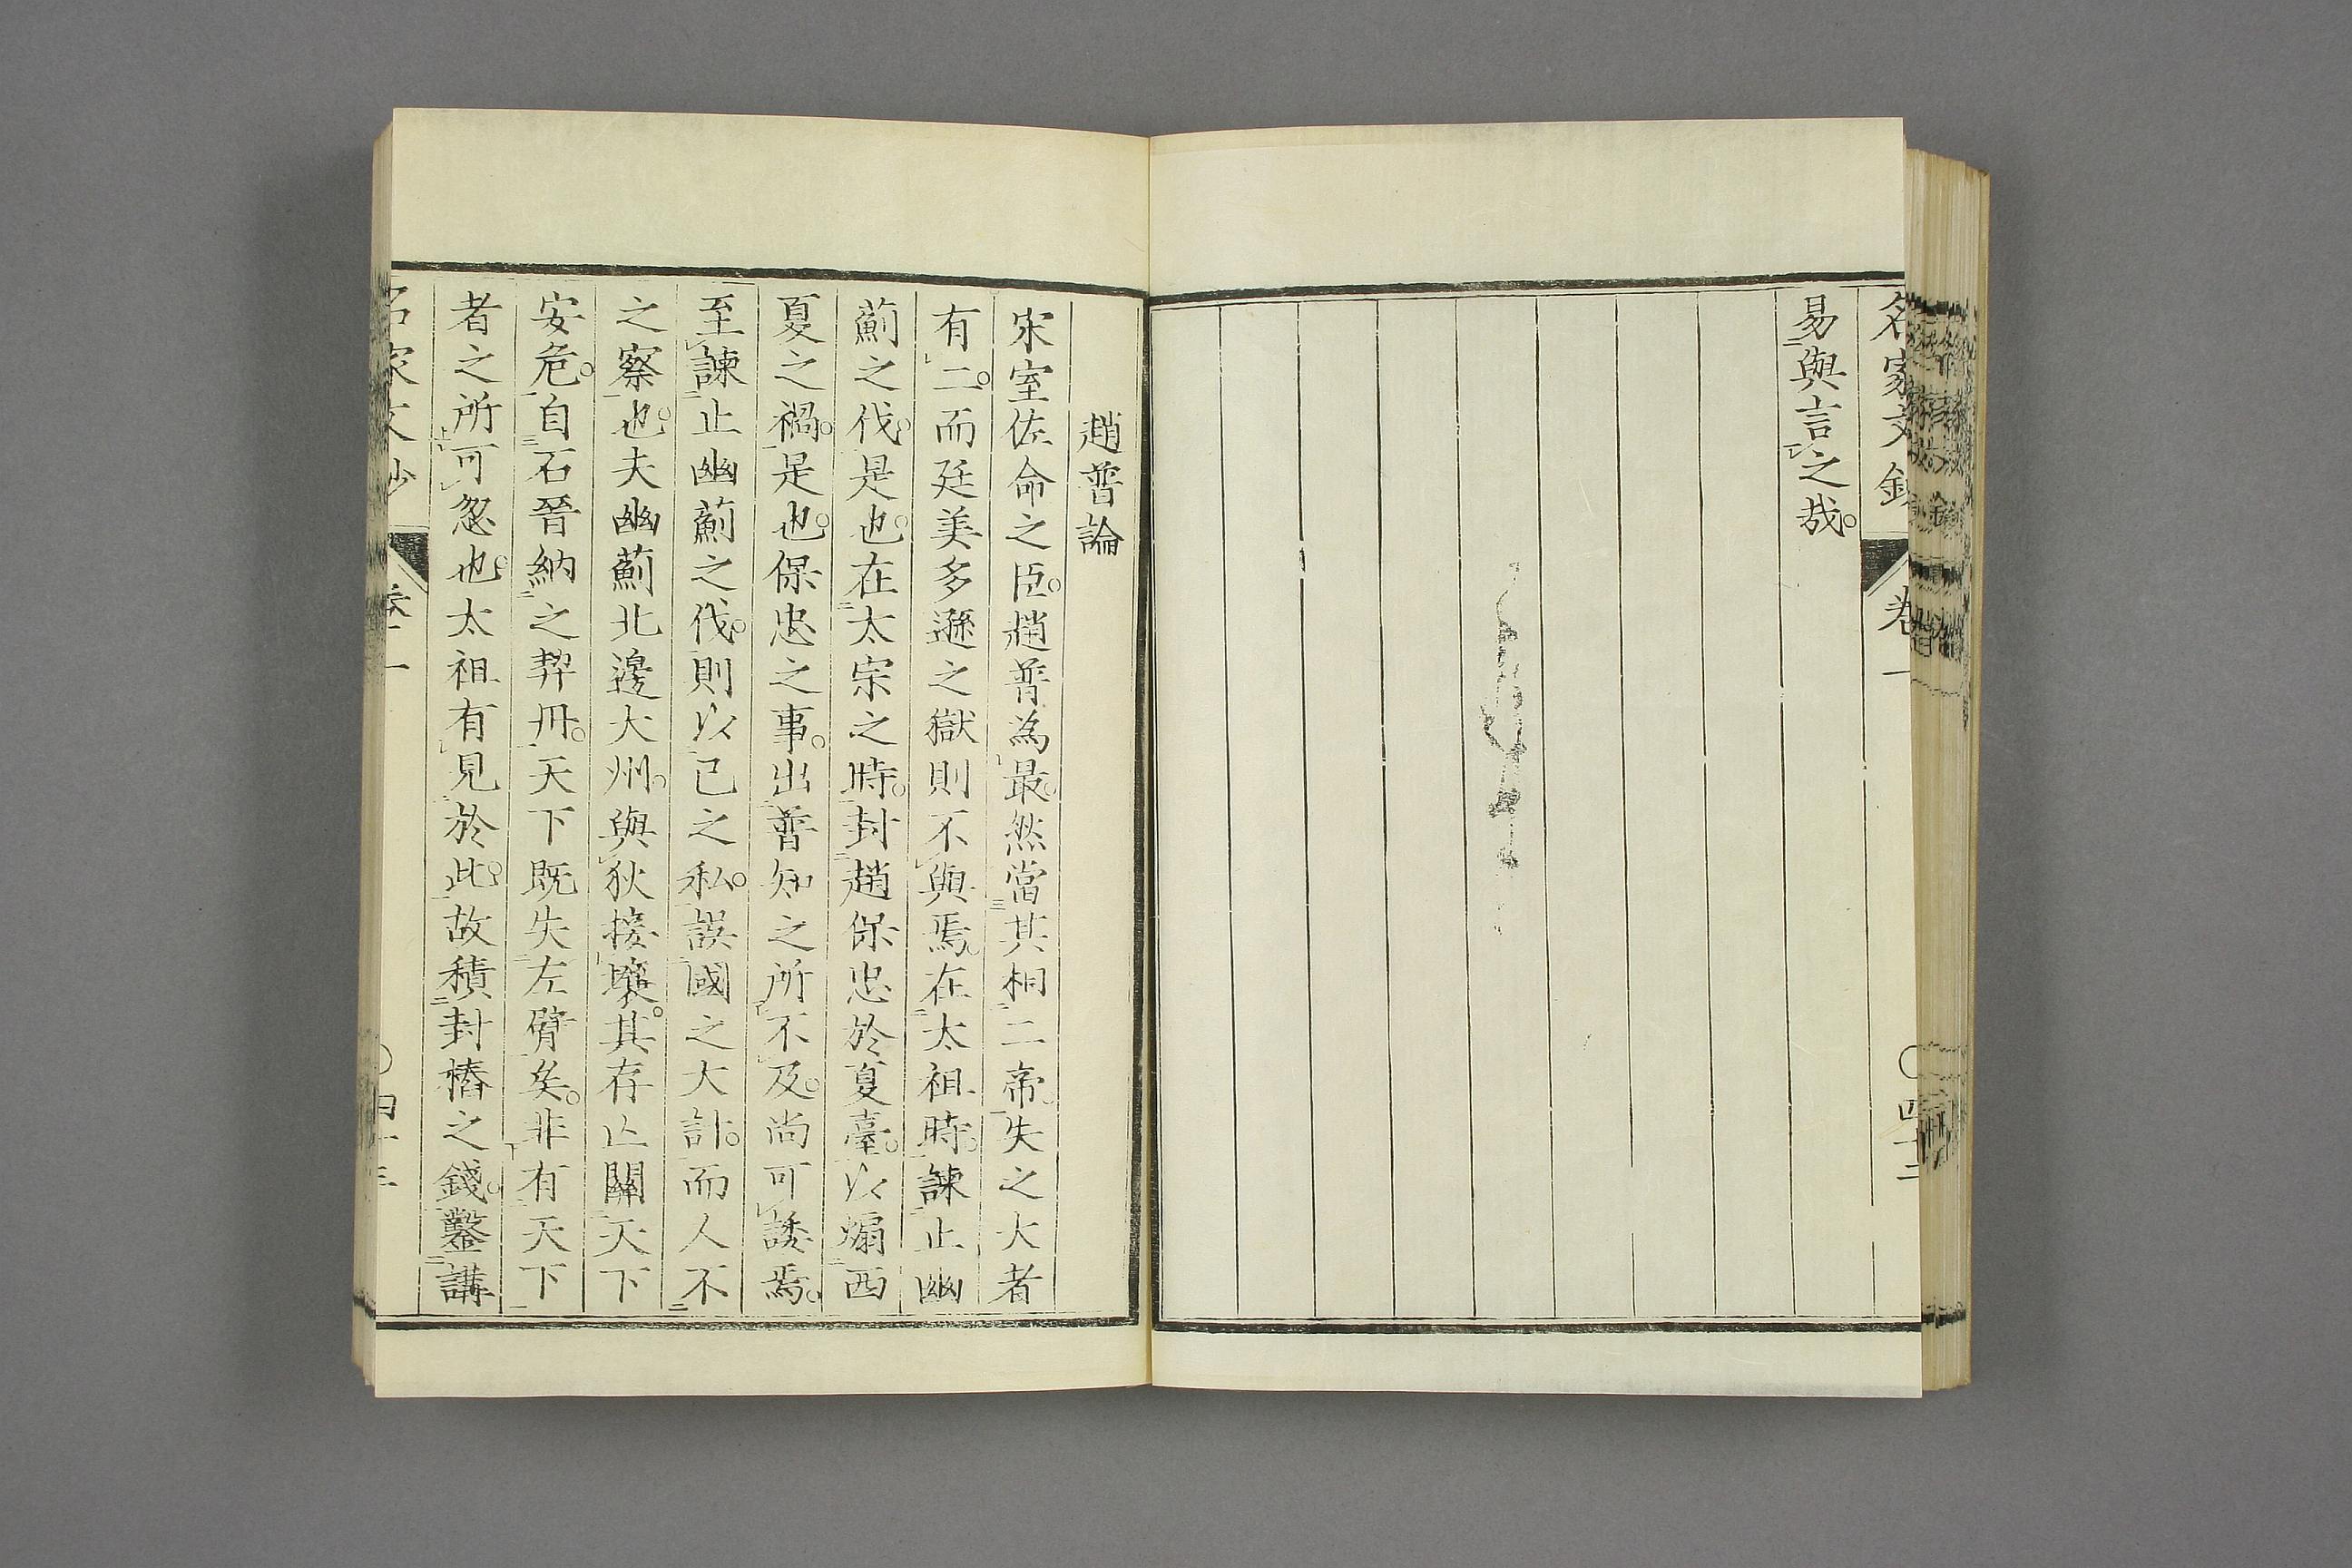 名家文鈔 卷一 〇四十二
易與言之哉。
趙普論
宋室佐命之臣。趙普為最。然當其相二帝。失之大者
有二。而廷美多遜之獄則不與焉。在太祖時。諫止幽
薊之伐。是也。在太宗之時。封趙保忠於夏臺。以煽西
夏之禍。是也。保忠之事。出普知之所不及。尚可諉焉。
至諫止幽薊之伐。則以己之私。誤國之大計。而人不
之察也。夫幽薊北邊大州。與狄接壤。其存亡關天下
安危。自石晉納之契丹。天下既失左臂矣。非有天下
者之所可忽也。太祖有見於此。故積封樁之錢。鑿講
名家文鈔 卷一 〇四十三